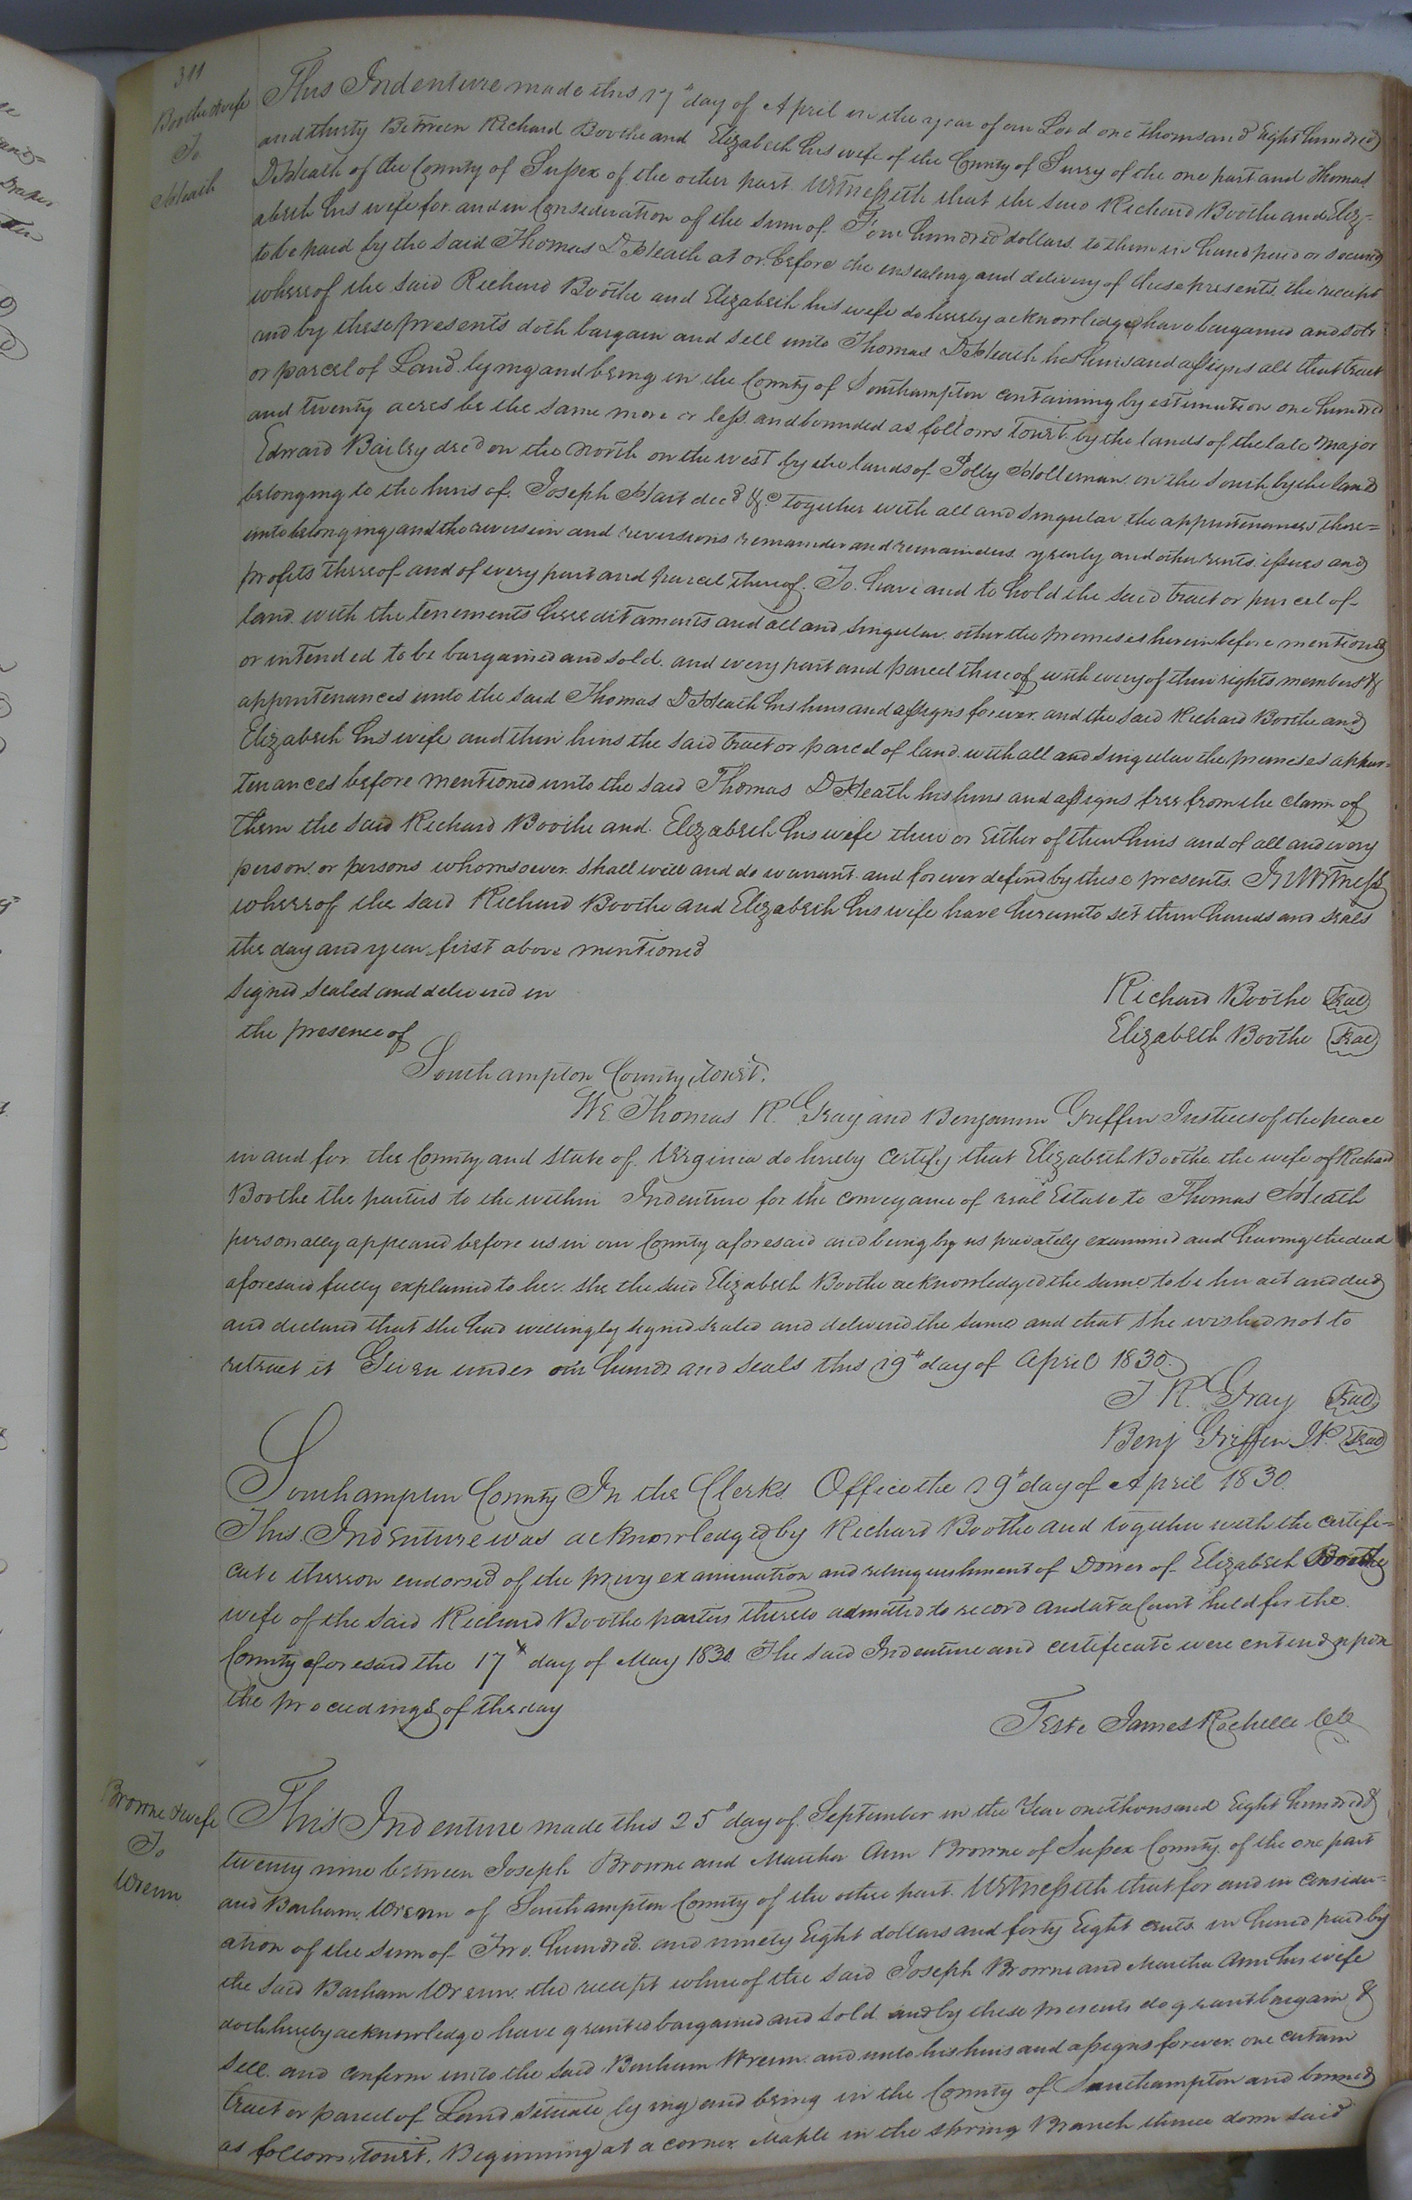 311
Boothe & wife
To
Heath
This Indenture made this 17th day of April in the year of our Lord one thousand Eight hundred
and thirty Between Richard Boothe and Elizabeth his wife of the County of Surry of the one part and Thomas
D Heath of the County of Sussex of the other part Witnesseth that the said Richard Boothe and Eliz=
abeth his wife for and in Consideration of the sum of Four hundred dollars to them in hand paid or secured
to be paid by the said Thomas D Heath at or before the ensealing and delivery of these presents the receipt
whereof the said Richard Boothe and Elizabeth his wife do hereby acknowledge have bargained and sold
and by these presents doth bargain and sell unto Thomas D Heath his heirs and assigns all that tract
or parcel of Land lying and being in the County of Southampton Containing by estimation one hundred
and twenty acres be the same more or less and bounded as follows towit by the lands of the late Major
Edward Bailey decd on the North on the west by the lands of Polly Holleman on the South by the land
belonging to the heirs of Joseph Hart decd &c together with all and singular the appurtenances there=
unto belonging and the reversion and reversions remainder and remainders yearly and other rents issues and
profits thereof and of every part and parcel thereof. To have and to hold the said tract or parcel of
land with the tenements hereditaments and all and singular other the premises herein before mentioned
or intended to be bargained and sold and every part and parcel thereof with every of their rights members &
appurtenances unto the said Thomas D Heath his heirs and assigns forever and the said Richard Boothe and
Elizabeth his wife and their heirs the said tract or parcel of land with all and singular the premises appur=
tenances before mentioned unto the said Thomas D Heath his heirs and assigns free from the claim of
them the said Richard Boothe and Elizabeth his wife their or Either of their heirs and of all and every
person or persons whomsoever shall will and do warrant and forever defend by these presents. In Witness
whereof the said Richard Boothe and Elizabeth his wife have hereunto set their hands and seals
the day and year first above mentioned
Signed sealed and delivered in
Richard Boothe Seal
the presence of
Elizabeth Boothe Seal
Southampton County, towit.
We Thomas R. Gray and Benjamin Griffin Justices of the peace
in and for the County and State of Virginia do hereby Certify that Elizabeth Boothe the wife of Richard
Boothe the parties to the within Indenture for the conveyance of real Estate to Thomas Heath
personally appeared before us in our County aforesaid and being by us privately examined and having the deed
aforesaid fully explained to her she the said Elizabeth Boothe acknowledged the same to be her act and deed
and declared that she had willingly signed sealed and delivered the same and that she wished not to
retract it Given under our hands and seals this 19th day of April 1830.
T R. Gray Seal
Benj Griffin JP. Seal
Southampton County In the Clerks Office the 19th day of April 1830.
This Indenture was acknowledged by Richard Boothe and together with the certifi=
cate thereon endorsed of the privy examination and relinquishment of Dower of Elizabeth Boothe
wife of the said Richard Boothe parties thereto admitted to record and at a Court held for the
County aforesaid the 17th day of May 1830 The said Indenture and certificate were entered upon
the proceedings of the day
Teste James Rochelle
Browne & wife
To
Wrenn
This Indenture made this 25th day of September in the Year one thousand Eight hundred &
twenty nine between Joseph Browne and Martha Ann Browne of Sussex County of the one part
and Barham Wrenn of Southampton County of the other part Witnesseth that for and in consider=
ation of the sum of Two hundred and ninety Eight dollars and forty Eight cents in hand paid by
the said Barham Wrenn the receipt whereof the said Joseph Browne and Martha Ann his wife
doth hereby acknowledge have granted bargained and sold and by these presents do grant bargain &
sell and confirm unto the said Barham Wrenn and unto his heirs and assigns forever one certain
tract or parcel of Land situate lying and being in the County of Southampton and bounded
as follows, towit, Beginning at a corner Maple in the spring Branch thence down said